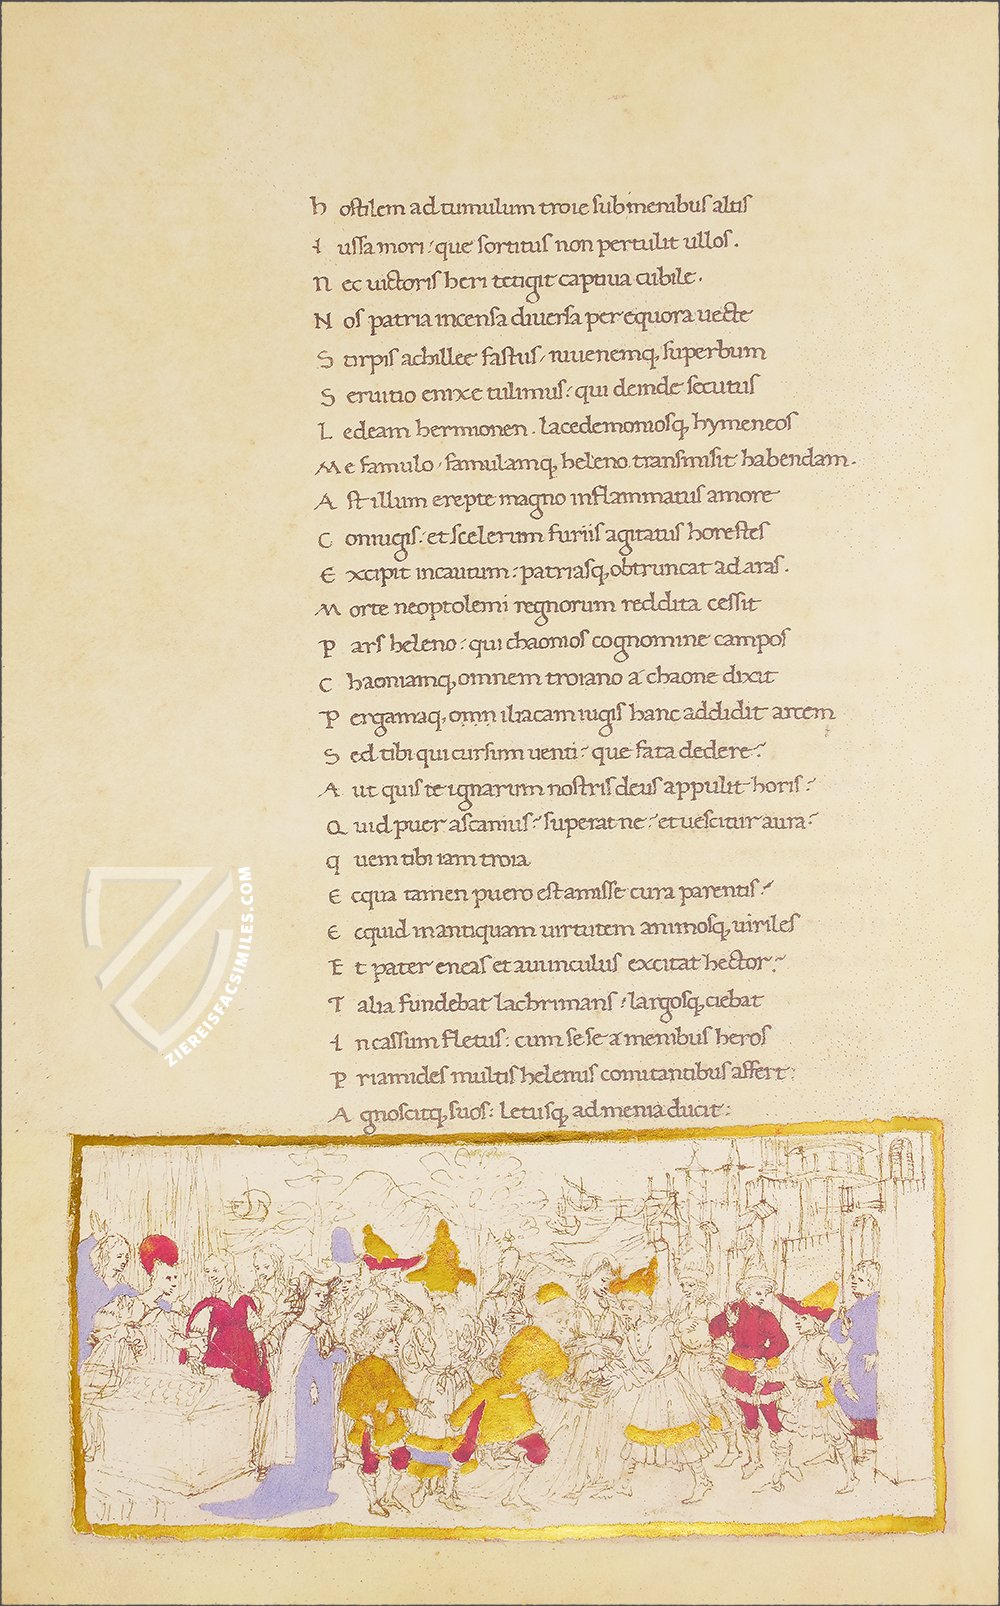 h ostilem ad tumulum troie sub menibus altis
I ussa mori: que sortitus non pertulit ullos.
N ec uictoris heri tetigit captiua cubile.
N os patria incensa diuersa per equora uecte
S tirpis achillee fastus, iuuenemq, superbum
S eruitio enixe tulimus: qui deinde secutus
L edeam hermionen. lacedemoniosq, hymeneos
M e famulo, famulamq, heleno transmisit habendam.
A st illum erepte magno inflammatus amore
C oniugis: et scelerum furiis agitatus horestes
E xcipit incautum: patriasq, obtruncat ad aras.
M orte neoptolemi regnorum reddita cessit
P ars heleno: qui chaonios cognomine campos
C haoniamq, omnem troiano a chaone dixit
P ergamaq, omn iliacam iugis hanc addidit arcem
S ed tibi qui cursum uenti: que fata dedere:
A ut quis te ignarum nostris deus appulit horis:
Q uid puer ascanius: superat ne: et uescitur aura:
q uem tibi iam troia
E cqua tamen puero est amisse cura parentis:
E cquid in antiquam uirtutem animosq, uiriles
E t pater eneas et auunculus excitat hector:
T alia fundebat lachrimans: largosq, ciebat
I ncassum fletus: cum sese a menibus heros
P riamides multis helenus comitantibus affert:
A gnoscitq, suos: letusq, ad menia ducit:
ZIEREISFACSIMILES.COM